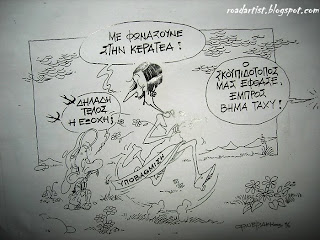 roadartist.blogspot.com
ΜΕ ΦΩΝΑΖΟΥΝΕ
ΣΤΗΝ ΚΕΡΑΤΕΑ!
ΔΗΛΑΔΗ
ΤΕΛΟΣ
Η ΕΞΟΧΗ;
Ο
ΣΚΟΥΠΙΔΟΤΟΠΟΣ
ΜΑΣ ΕΦΘΑΣΕ,
ΕΜΠΡΟΣ
ΒΗΜΑ ΤΑΧΥ!
ΥΠΟΒΑΘΜΙΣΗ